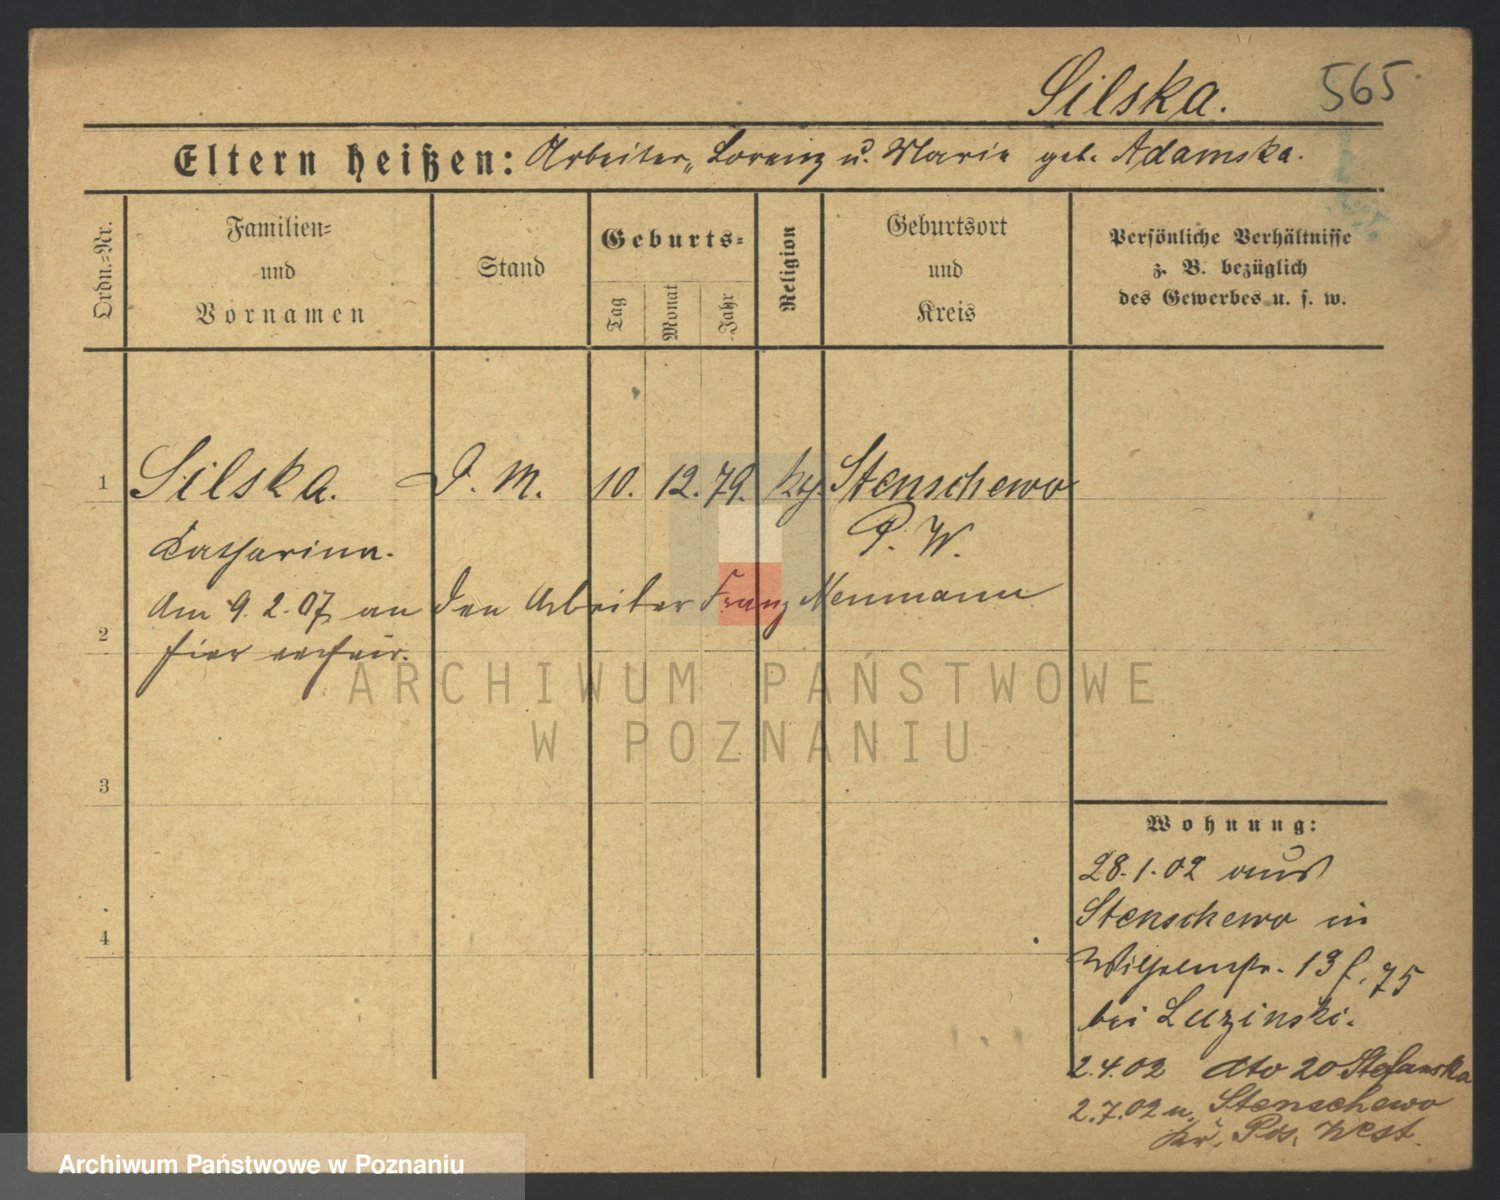 Silska. 565
Eltern heißen: Arbeiter Lorenz u. Marie geb. Adamska.
Ordn.-Nr.
Familien-
und
Vornamen
Stand
Geburts-
Tag
Monat
Jahr
Religion
Geburtsort
und
Kreis
Persönliche Verhältnisse
z. B. bezüglich
des Gewerbes u. s. w.
1 Silska. D. M. 10. 12. 79. Stenschewo
Catharina. P. W.
Am 9. 2. 07 an den Arbeiter Franz Neumann
2
hier verheir.
3
4
Wohnung:
28.1.02 aus
Stenschewo in
Wilhelmstr. 13 f. 75
bei Luzinski.
2.4.02 dto 20 Stefanska
2.7.02 n. Stenschewo
Kr. Pos. West.
ARCHIWUM PAŃSTWOWE
W POZNANIU
Archiwum Państwowe w Poznaniu